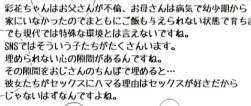 彩花ちゃんはお父さんが不倫、お母さんは病気で幼少期から
家にいなかったのでまともにご飯も与えられない状態で育ち
でも現代では特殊な環境とは言えないですね。
SNSではそういう子たちがたくさんいます。
埋められない心の隙間があるんですね。
その隙間をおじさんのちんぽで埋めると…
彼女たちがセックスにハマる理由はセックスが好きだから
じゃないはずなんですよね。